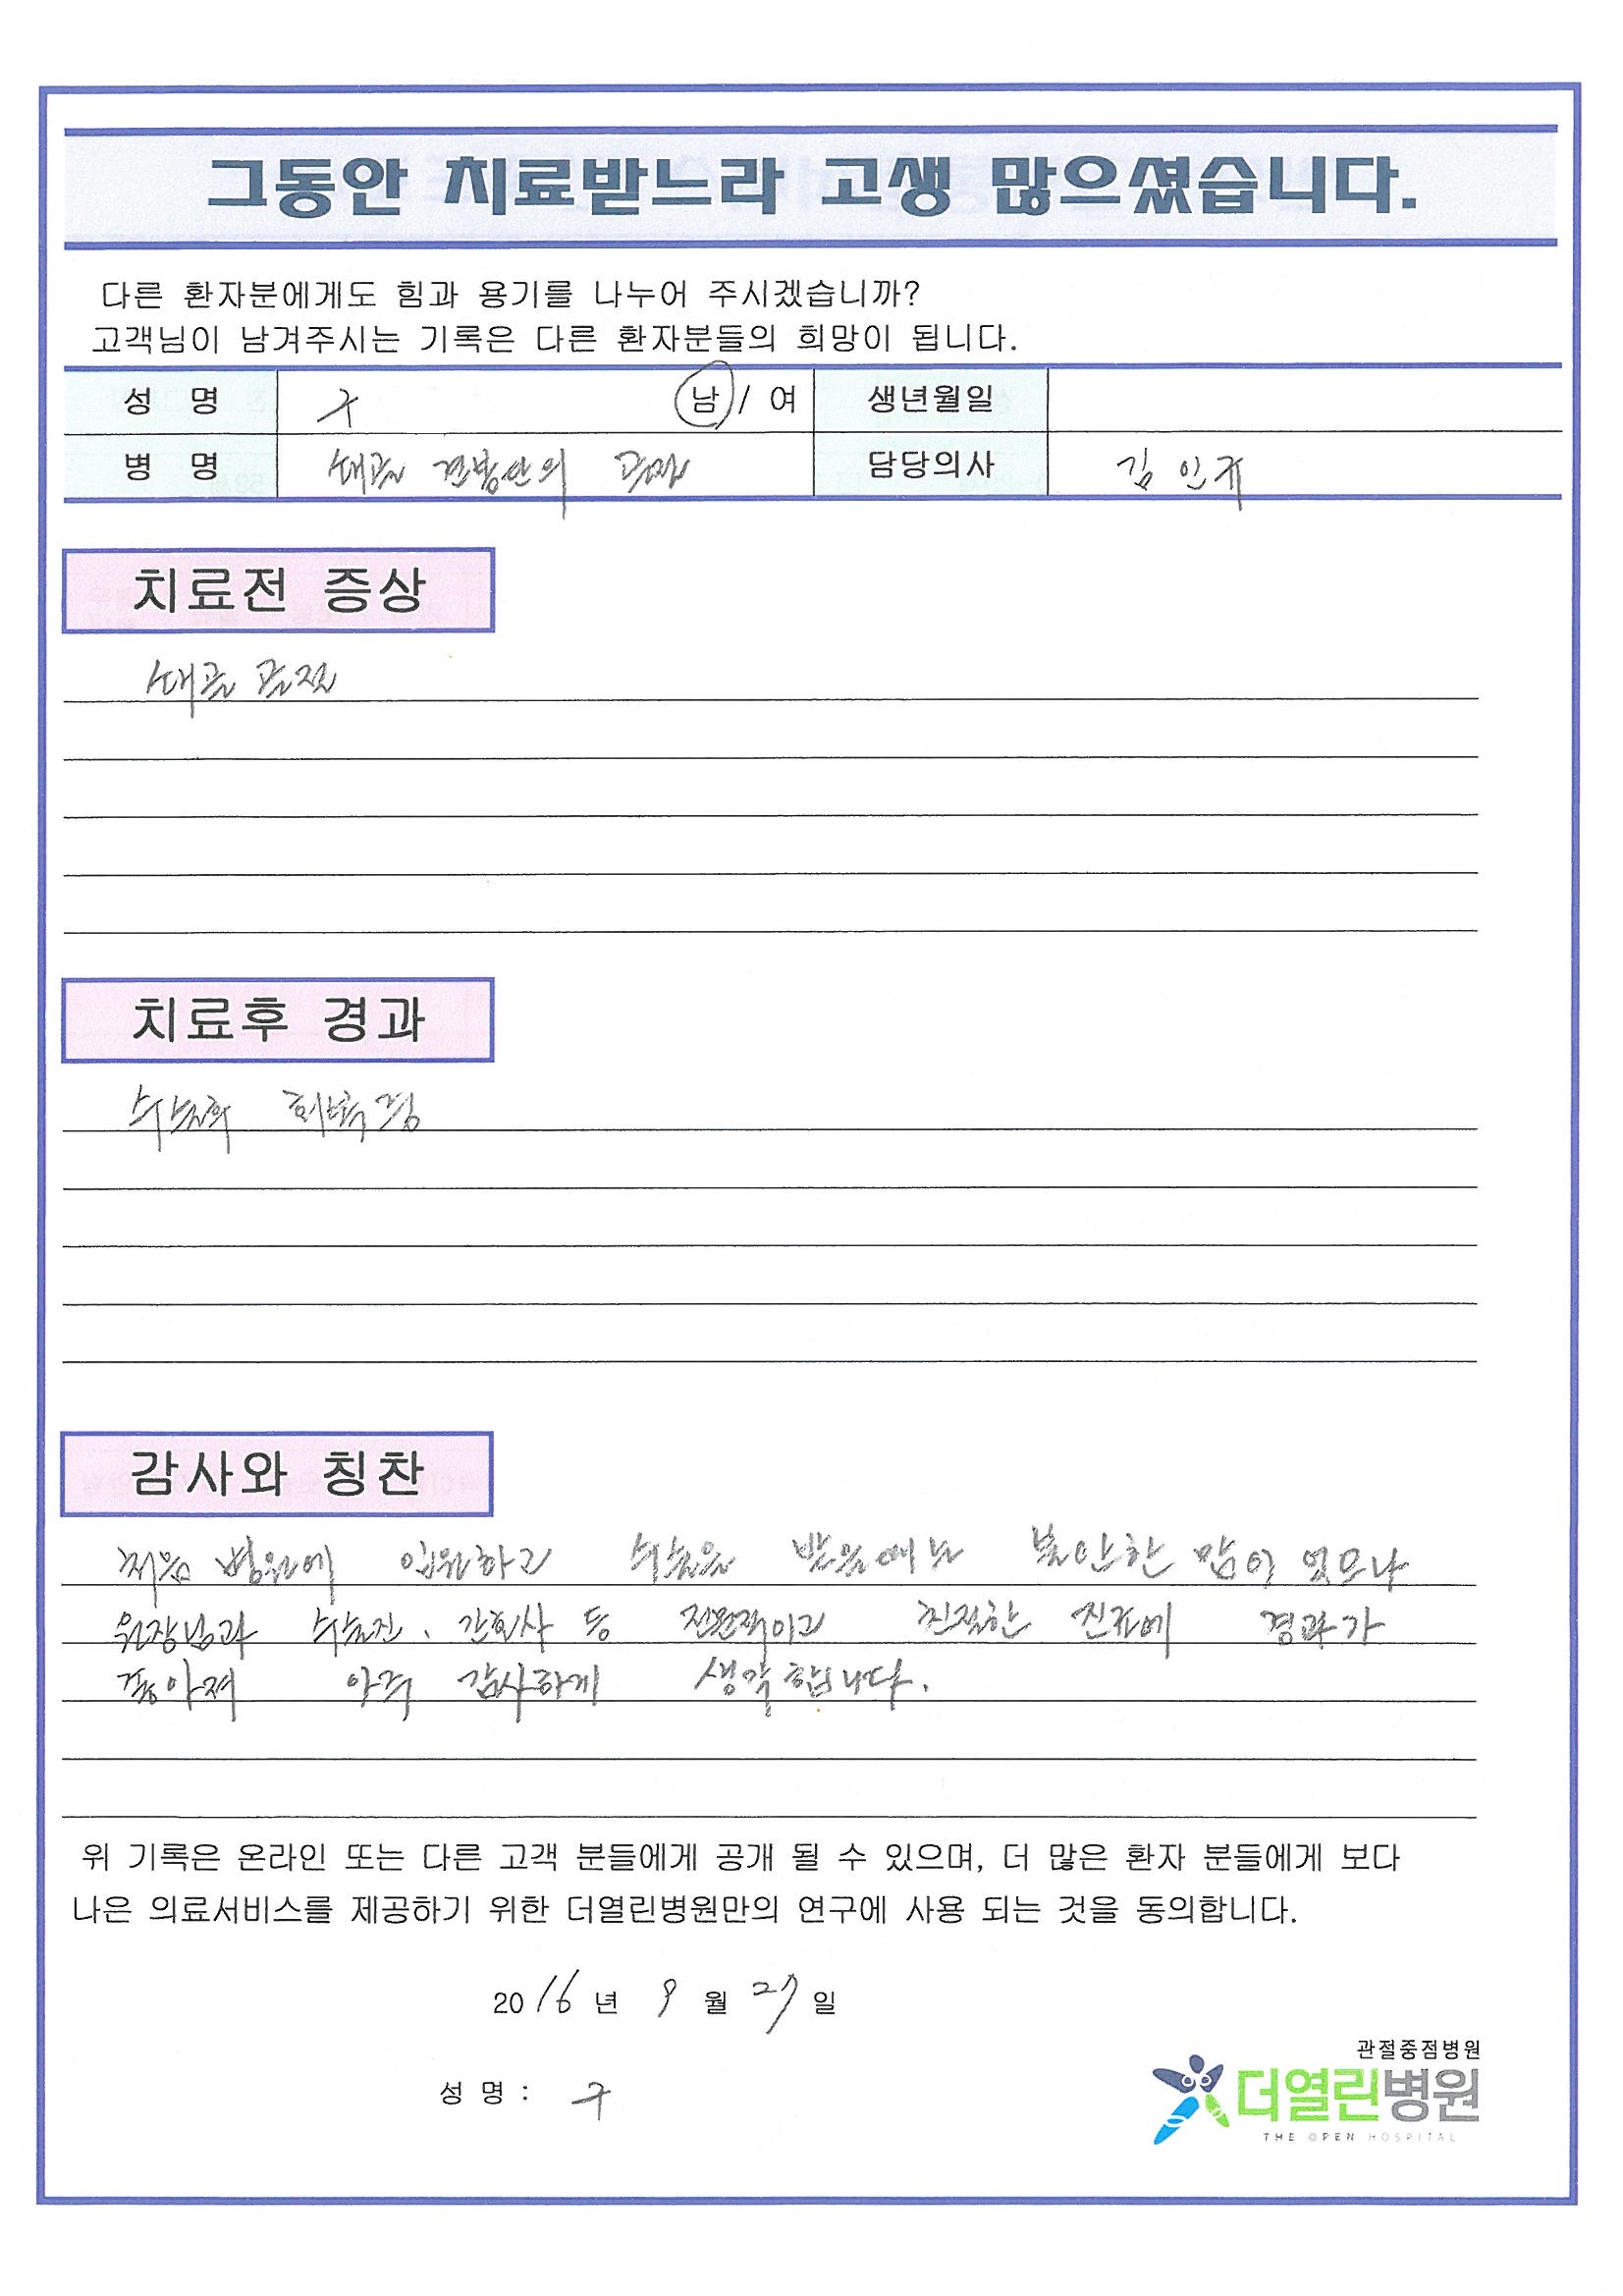 그동안 치료받느라 고생 많으셨습니다.
다른 환자분에게도 힘과 용기를 나누어 주시겠습니까?
고객님이 남겨주시는 기록은 다른 환자분들의 희망이 됩니다.
성 명 구 남 / 여 생년월일
병 명 쇄골 견봉단의 골절 담당의사 김인규
치료전 증상
쇄골 골절
치료후 경과
수술후 회복됨
감사와 칭찬
처음 병원에 입원하고 수술을 받을때는 불안한 맘이 있으나
원장님과 수술진, 간호사 등 친절한 진료에 경과가
좋아져 아주 감사하게 생각합니다.
위 기록은 온라인 또는 다른 고객 분들에게 공개 될 수 있으며, 더 많은 환자 분들에게 보다
나은 의료서비스를 제공하기 위한 더열린병원만의 연구에 사용 되는 것을 동의합니다.
2016 년 9 월 27 일
관절중점병원
성 명 : 구
더열린병원
THE OPEN HOSPITAL